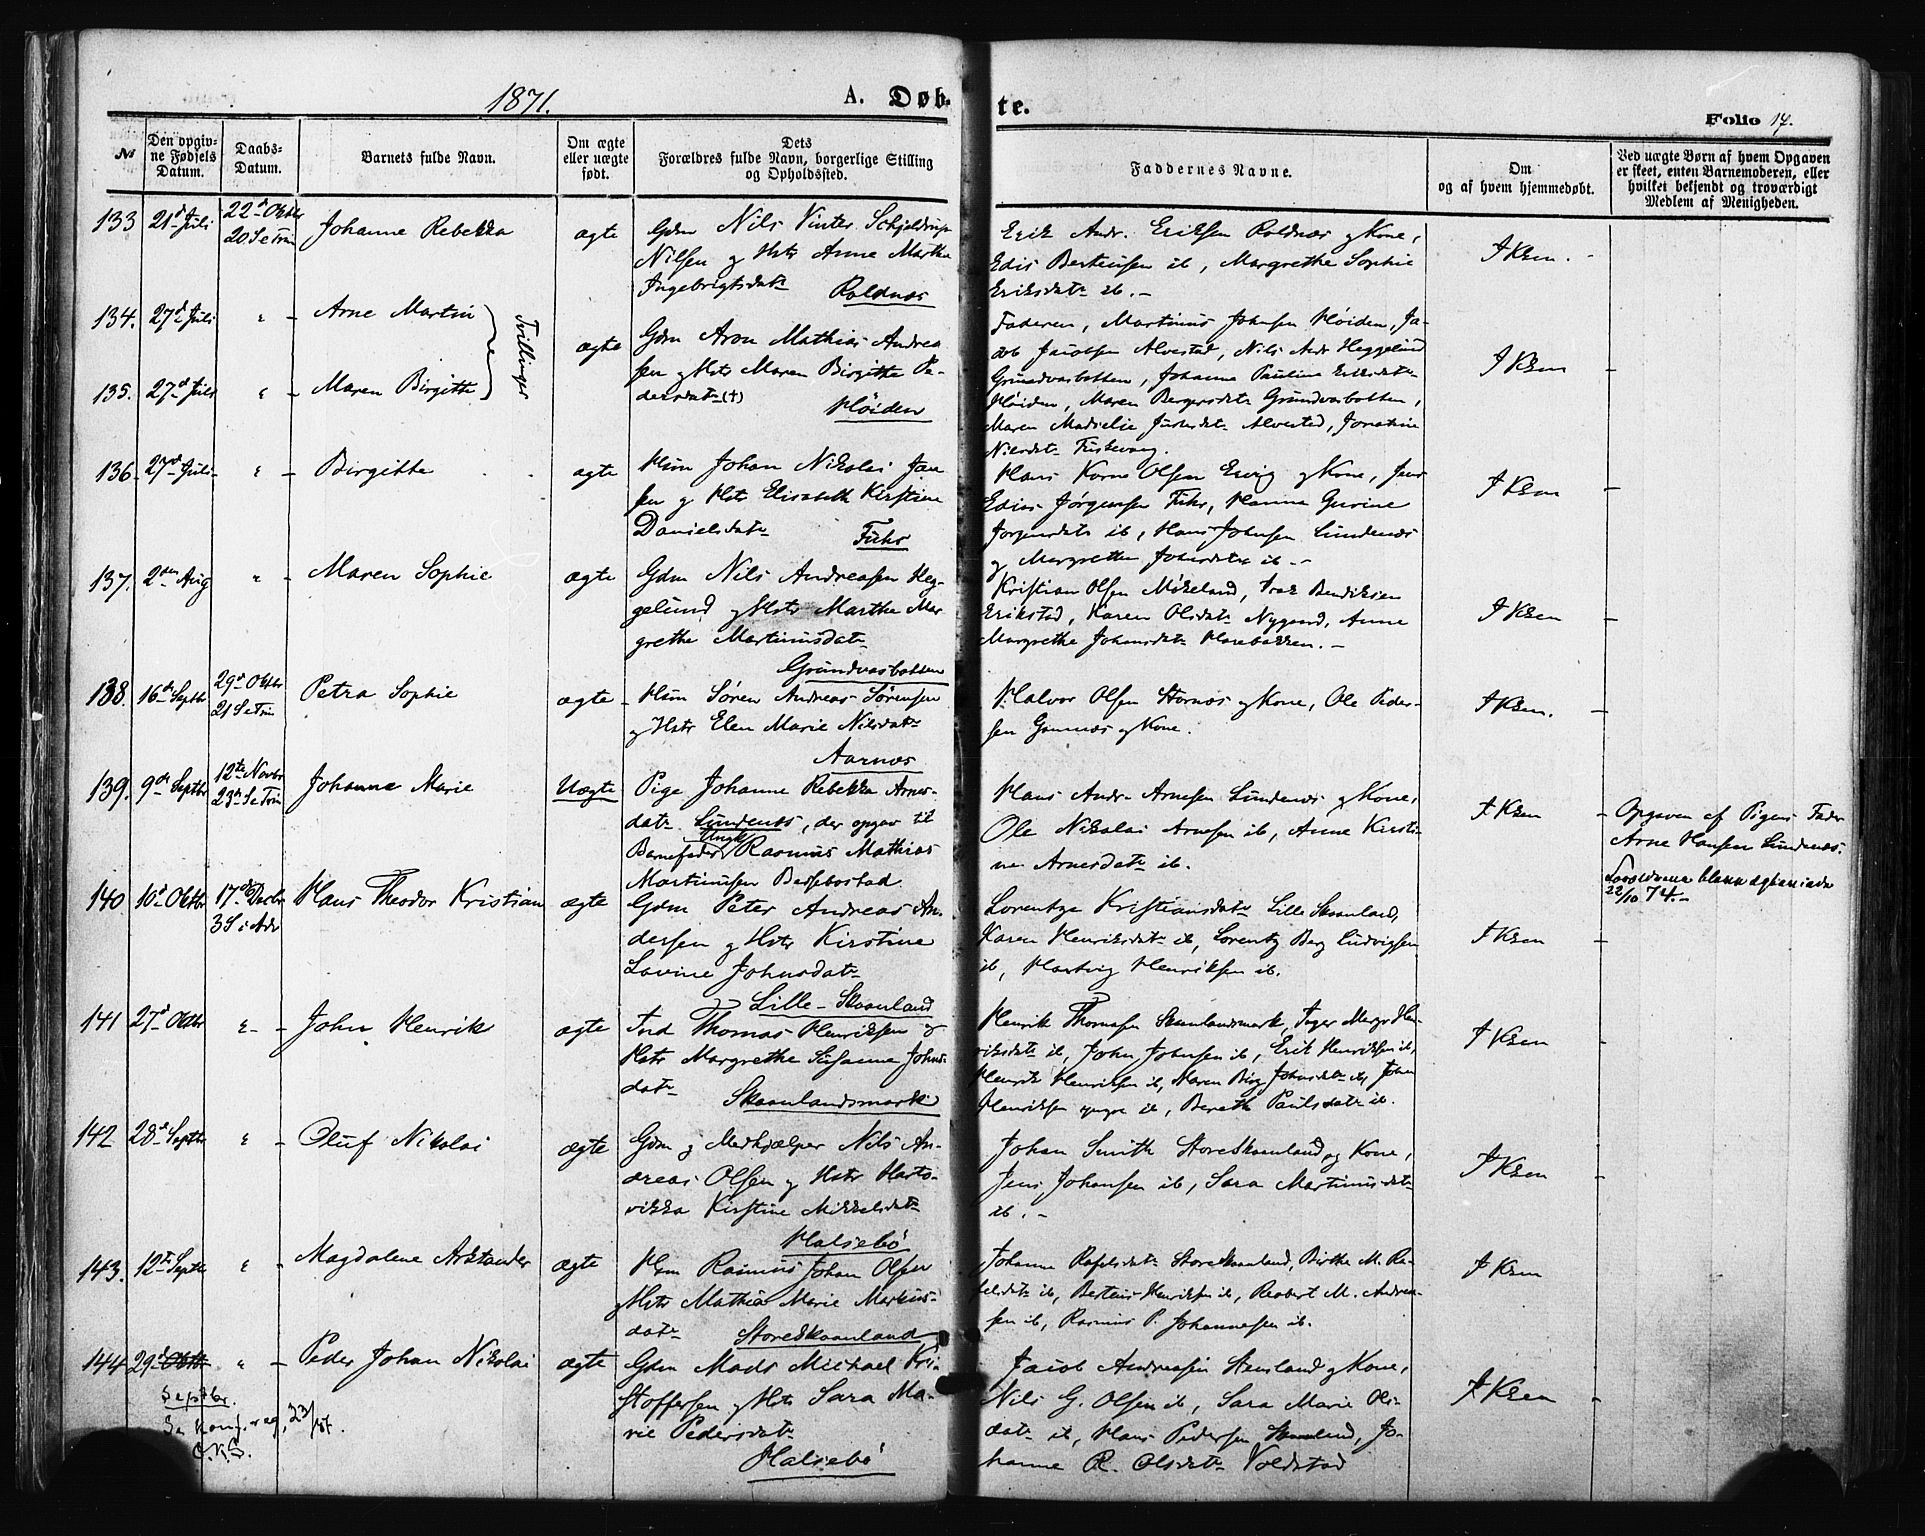 1871.
A. Døbte.
Folio 17.
№
Den opgivne Fødsels Datum.
Daabs-Datum.
Barnets fulde Navn.
Om ægte eller uægte født.
Dets Forældres fulde Navn, borgerlige Stilling og Opholdssted.
Faddernes Navne.
Om og af hvem hjemmedøbt.
Ved uægte Børn af hvem Opgaven er skeet, enten Barnemoderen, eller hvilket bekjendt og troværdigt Medlem af Menigheden.
133 21d Juli 22d Oktbr 20 S e Trin Johanne Rebekka ægte
Gdm Nils Vinter Schjeldrup
Nilsen og Hstr Anne Martha
Ingebrigtsdatr Roldnæs
Erik Andr. Eriksen Roldnæs og Kone,
Edis Berteusen ib, Margrethe Sophie
Eriksdatr ib. –
I Kken. -
134. 27d Juli " - Arne Martin
135. 27d Juli " - Maren Birgitte
Tvillinger
ægte
Gdm Aron Mathias Andrea
sen og Hstr Maren Birgitha Pe-
dersdatr (+) Høiden
Faderen, Martinus Johnsen Høiden, Ja-
cob Jacobsen Alvestad, Nils Andr Heggelund
Grundvasbotten, Johanna Pauline Eriksdatr
Høiden, Maren Bergersdatr Grundvasbotten,
Maren Justsdatr Alvestad, Jonetine
Nilsdatr
I Kken -
136. 27d Juli " - Birgitte ægte
Hsm Johan Nikolai Jen
sen og Hstr Elisabeth Kirstine
Danielsdatr Fuhr
Hans Korne Olsen Ervig og Kone, Jens
Edius Jørgensen Fuhr, Hanna Gurine
Jørgensdatr ib, Hans Johnsen Lundenæs
og Margrethe Johnsdatr ib. -
I Kken -
137. 2den Aug " - Maren Sophie ægte
Gdm Nils Andreasen Heg-
gelund og Hstr Martha Mar
grethe Martinusdatr
Grundvasbotten
Kristian Olsen Møkeland, Isak Bendiksen
Erikstad, Karen Olsdatr Nygaard, Anne
Margrethe Johansdatr Harebakken. -
I Kken -
138. 16de Septbr 29d Oktbr 21 S e Trin Petra Sophie ægte
Hsm Søren Andreas Sørensen
og Hstr Elen Marie Nilsdatr
Aarnæs
Halvor Olsen Stornæs og Kone, Ole Peder-
sen Gamnæs og Kone.
I Kken. -
139. 9de Septbr 12te Novbr 23de S e Trin Johanne Marie Uægte
Pige Johanne Rebekka Arnes-
datr Lundenæs, der opgav til
Barnefader Ungk Rasmus Mathias
Martinusen Bessebostad.
Hans Andr. Arnesen Lundenæs og Kone,
Ole Nikolai Arnesen ib, Anne Kirsti-
ne Arnesdatr ib.
I Kken
- Opgaven af Pigens Fader
Arne Hansen Lundenæs.
22/10 74. -
140 10d Oktbr 17de Decbr 3 S i Adv Hans Theodor Kristian ægte
Gdm Peter Andreas An-
dersen og Hstr Kirstine
Lovine Johnsdatr
Lille-Skaanland
Lorentze Kristiansdatr Lille Skaanland,
Karen Henriksdatr ib, Lorentz Berg Ludvigsen
ib, Hartvig Henriksen ib.
I Kken -
141 27d Oktbr " - John Henrik ægte
Ind Thomas Henriksen og
Hstr Margrethe Susanne Johns-
datr Skaanlandsmark
Henrik Thomasen Skaanlandsmark, Inger Margr Hen-
riksdatr ib, John Johnsen ib, Erik Henriksen ib,
Henrik Henriksen ib, Maren Birg Johnsdatr ib, John
Henriksen yngre ib, Bereth Paulsdatr ib.
I Kken -
142 28d Septbr " - Oluf Nikolai ægte
Gdm og Medhjælper Nils An-
dreas Olsen og Hstr Harto-
vikka Kirstine Mikkelsdatr
Halsebø
Johan Smith Store Skaanland og Kone,
Jens Johansen ib, Sara Martinusdatr
ib. -
I Kken -
143. 12te Septbr " - Magdalene Arktander ægte
Hsm Rasmus Johan Olsen
og Hstr Mathia Marie Markus-
datr Store Skaanland
Johanna Rafelsdatr Store Skaanland, Birthe M. Ra-
felsdatr ib, Berteus Henriksen ib, Reobert M. Andrea-
sen ib, Rasmus P. Johannesen ib.
I Kken
144 29d Oktbr Septbr. " - Peder Johan Nikolai ægte
Se Konf. reg. 23/
O.K.S.
Gdm Mads Michael Kri-
stoffersen og Hstr Sara Ma-
rie Pedersdatr
Halsebø
Jacob Andreasen Stensland og Kone,
Nils G. Olsen ib, Sara Marie Ols-
datr ib, Hans Pedersen, Jo-
hanne R. Olsdatr Voldstad
I Kken -